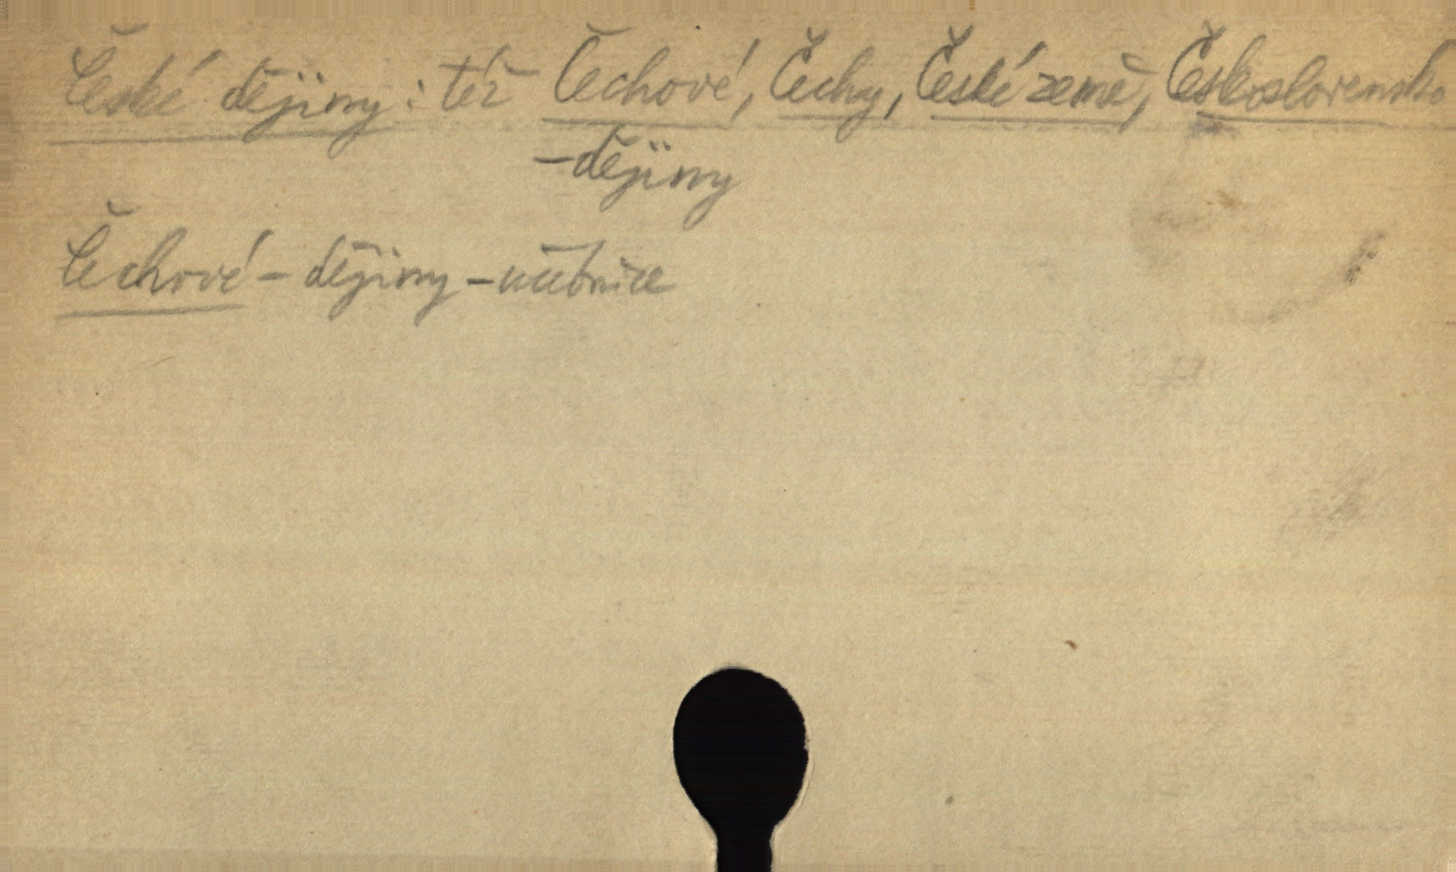 České dějiny: též Čechové, Čechy, České země, Československo
- dějiny
Čechové - dějiny - učebnice